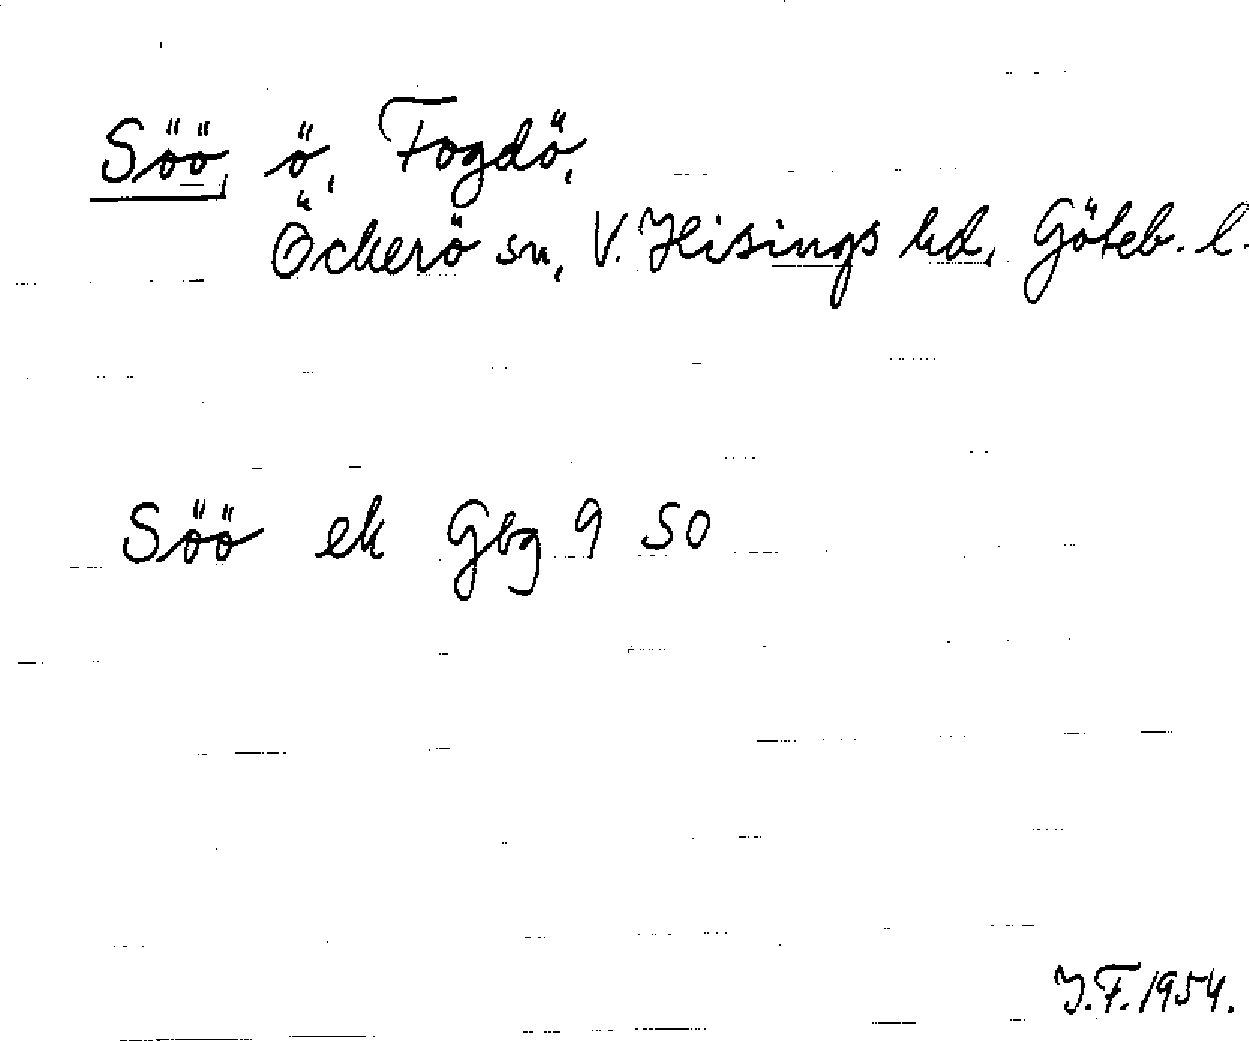 Söö, ö, Fogdö,
Öckerö sn, V. Hisings hd, Göteb. l.
Söö ek Gbg 9 SO
I.F. 1954.